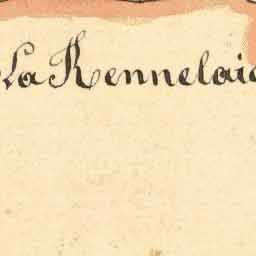 La Rennelais